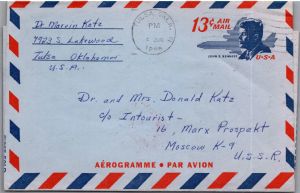 Dr Marvin Katz
4923 S. Lakewood
Tulsa Oklahoma
U.S.A.
TULSA
PM
13¢ AIR
MAIL
JOHN F. KENNEDY
U·S·A
Dr. and Mrs. Donald Katz
c/o Intourist -
16, Marx Prospekt
Moscow K-9
U.S.S.R.
AÉROGRAMME • PAR AVION